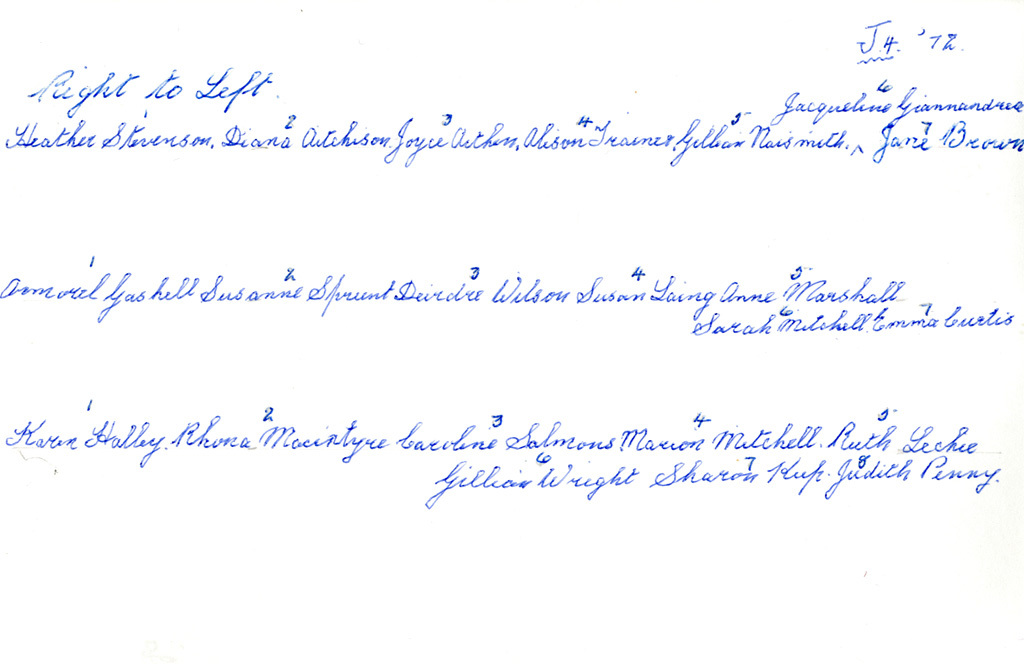 J.4. '72.
Right to Left.
6
Jacqueline Giannandrea
1 2 3 4 5 7
Heather Stevenson. Diana Aitchison. Joyce Aitken. Alison Trainer. Gillian Naismith. ^ Jane Brown
1 2 3 4 5
Armorel Gaskell Susanne Sprunt Deirdre Wilson Susan Laing Anne Marshall
6 7
Sarah Mitchell. Emma Curtis
1 2 3 4 5
Karen Halley. Rhona Macintyre Caroline Salmons Marion Mitchell. Ruth Leckie
6 7 8
Gillian Wright Sharon Judith Penny.